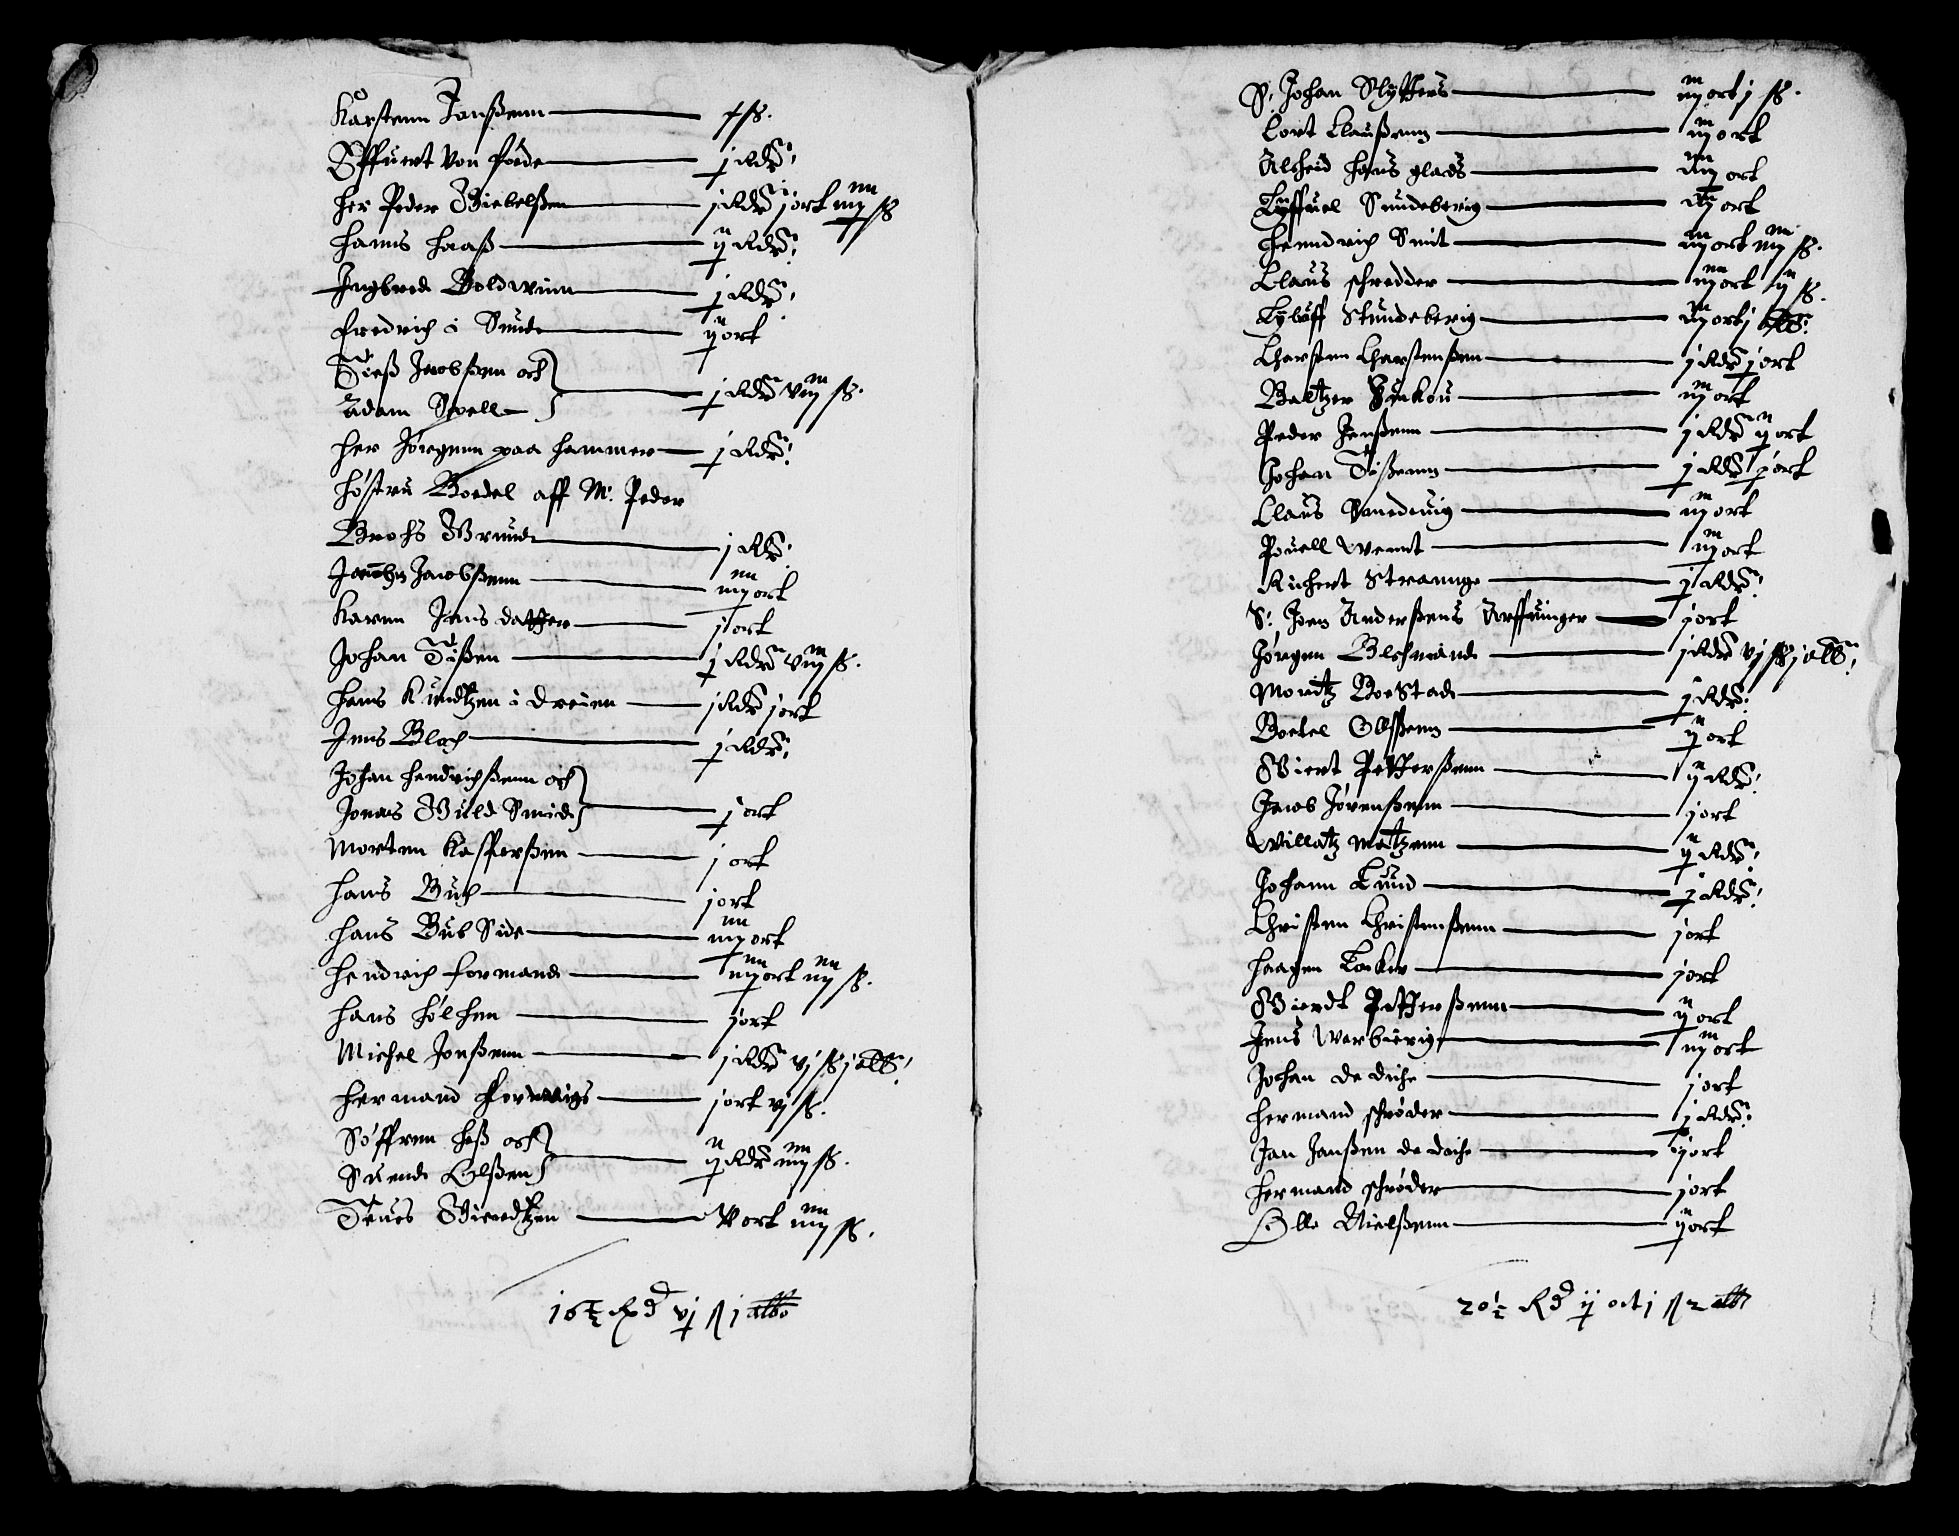 Karstenn Janßenn — ß.
Effuert von fóde — j Rdr:
her Peder Wiebelßen — j Rdr j ort iiij ß
Hanns Haaß — ij Rdr:
Ingbred Boldwinn — j Rdr:
fredrich i Sund — ij ort
Tieß Jacobßen och
Adam Spell — j Rdr viij ß.
her Jórgenn paa hammer — j Rdr:
höstru Boedel aff Mr. Peder
Grochs Grund — j Rdr:
Jacobßenn — iiij ort
Karnn Jens datter — j ort
Johan Tißen — j Rdr viij ß.
Hans Kundtzen i Dreien — j Rdr j ort
Jens Bloch — j Rdr:
Johan Hendrichßenn och
Jonas Guld Smid — j ort
Morten Kasperßen — j ort
Hans Buch — j ort
Hans Bub Side — iiij ort
Hendrich formand — iiij ort iiij ß.
Hans Hólchen — j ort
Michel Jonßenn — j Rdr vj ß j alb:
Hermand — j ort vj ß.
Sóffren Heß och
Suend Olßen — ij Rdr iiij ß.
Teues Wierdtzen — V ort iiij ß.
16½ Rd vj ß j alb
S: Johan Slytters — iij ort j ß.
Cort Claußenn — iij ort
Alheid Hans glads — iij ort
Lyffuel Sundeberig — ort
Henndrich Smit — iij ort iiij ß.
Claus schredder — iij ort ij ß.
Lyloff Stundeberig — iij ort j
Charsten Charstenßen — j Rdr j ort
Baltzer — iij ort
Peder Jenßenn — j Rdr ij ort
Johan Tißenn — j Rdr j ort
Claus — iij ort
Pouell Wennt — iij ort
Richert Strannge — j Rdr:
S: Joen Anderßens Arffuinger — j ort
Jórgen Blechmand — j Rdr vj ß j alb:
Moritz Boestad — j Rdr:
Boetel Olßenn — ij ort
Wiert Petterßenn — ij Rdr:
Jacob Jórenßenn — j ort
Willatz Matzenn — ij Rdr:
Johann Lund — j Rdr:
Christen Christenßenn — j ort
Haagen — j ort
Wierdt Petterßenn — ij ort
Jens Warbierig — iij ort
Johan de Diche — j ort
Hermand schróder — j Rdr:
Jan Janßen de Diche — ij ort
Hermand schróder — j ort
Olle Nielßenn — ij ort
20½ Rd ij ort j ß 2 alb